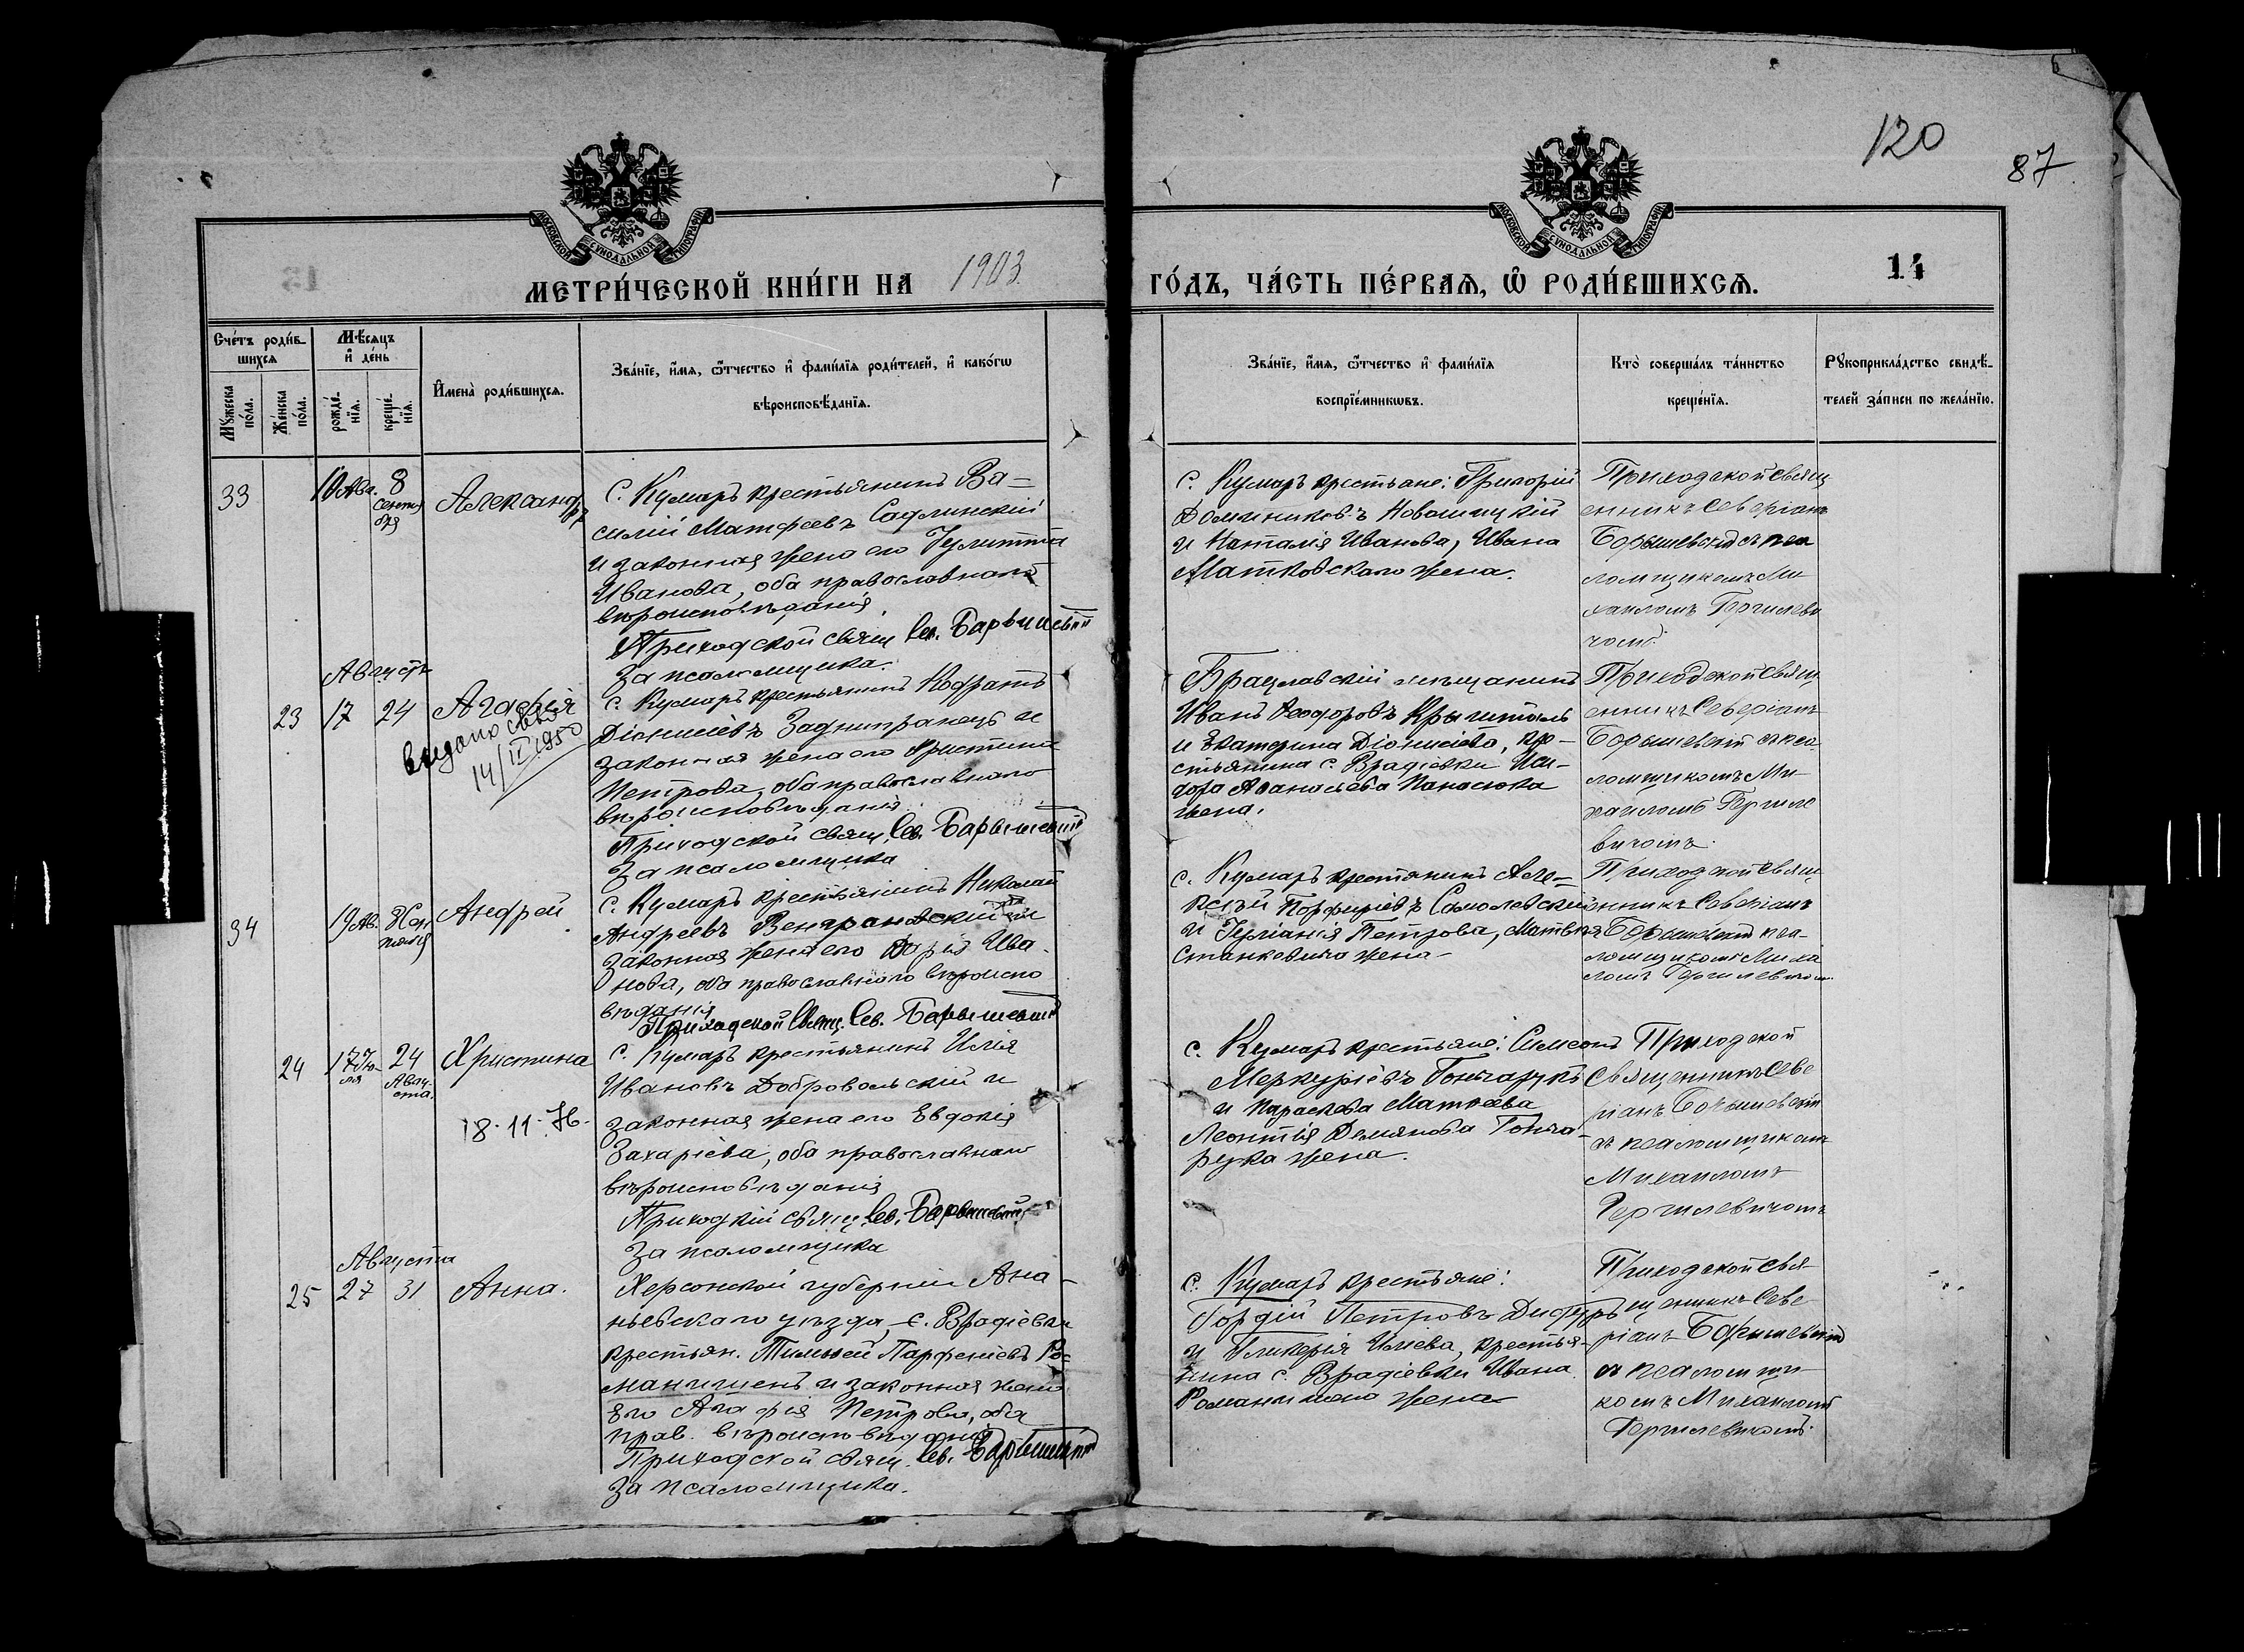 120
87
МОСКОВСКОЙ СѴНОДАЛЬНОЙ ТИПОГРАФІИ
МОСКОВСКОЙ СѴНОДАЛЬНОЙ ТИПОГРАФІИ
МЕТРИ́ЧЕСКОЙ КНИ́ГИ НА 1903
ГО́ДЪ, ЧА́СТЬ ПЕ́РВАЯ, Ѡ РОДИ́ВШИХСЯ.
14
Сче́тъ роди́в-
шихся
Мѣ́сяцъ
и҆ де́нь
Мꙋ́жеска по́ла.
Же́нска по́ла.
рожде́-
нїя.
креще́-
нїя.
И҆мена̀ роди́вшихся.
Зва́нїе, и҆́мя, ѻ҆́тчество и҆ фами́лїя роди́телей, и҆ како́гѡ
вѣроисповѣ́данїя.
Зва́нїе, и҆́мя, ѻ҆́тчество и҆ фами́лїя
воспрїе́мникѡвъ.
Кто̀ соверша́лъ та́инство
креще́нїя.
Рꙋкоприкла́дство свидѣ́-
телей за́писи по жела́нїю.
33
10 Авг.
8
Сентя
бря
Александръ
С. Кумаръ крестьянинъ Ва-
силій Матфеевъ Садлинскій
и законная жена его Іулитта
Иванова, оба православнаго
вѣроисповѣданія.
Приходской свящ Сев. Барышевскій
За псаломщика.
с. Кумаръ крестьяне: Григорій
Доминиковъ Новалицкій
и Наталія Иванова, Ивана
Матковскаго жена.
Приходской свящ
енникъ Северіанъ
Борышевскій съ пса
ломщикомъ Ми
хаиломъ Гергилеви
чомъ.
Августъ
23
17
24
Агафія
видано свід
14/II 1950
С. Кумаръ крестьянинъ Кодратъ
Діонисіевъ Заднипранецъ и
законная жена его Христина
Петрова, оба православнаго
вѣроисповѣданія
Приходской свящ. Сев. Барышевскій
За псаломщика
Брацлавскій мѣщанинъ
Иванъ Феодоровъ Крышталь
и Екатерина Діонисіева, кре-
стьянина с. Врадіевки Иси-
дора Афанасьева Панасюка
жена.
Приходской Свящ
енникъ Северіанъ
Борышевскій съ пса
ломщикомъ Ми
хаиломъ Гергиле
вичомъ.
34
19 Ав.
8 Сен
тября
Андрей
С. Кумаръ крестьянинъ Николай
Андреевъ Венграновскій и
законная жена его Дарія Ива-
нова, оба православнаго вѣроиспо
вѣданія
Приходской Свящ. Сев. Барышевскій
с. Кумаръ крестьянинъ Але-
ксѣй Порфиріевъ Самолевскій
и Іуліанія Петрова, Матвѣя
Станкевича жена-
Приходской Свящ
енникъ Северіанъ
Борышевскій пса-
ломщикомъ Михаи
ломъ Гергилевичом
24
17 Ію-
ля
24
Авгу-
ста.
Христина
18-11-36.
С. Кумаръ крестьянинъ Илія
Ивановъ Добровольскій и
законная жена его Евдокія
Захаріева, оба православнаго
вѣроисповѣданія
Приходскій свящ. Сев. Барышевскій
За псаломщика
с. Кумаръ крестьяне: Симеонъ
Меркуріевъ Гончарукъ
и Параскева Матвеева
Леонтія Демянова Гонча-
рука жена.
Приходской
Священникъ Севе
ріанъ Борышевскій
съ псаломщикомъ
Михаиломъ
Гергилевичомъ
Августа
25
27
31
Анна.
Херсонской губерніи Ана-
ньевскаго уѣзда, с. Врадіевки
крестьян. Тимофей Парфеніевъ Ро-
манишенъ и законная жена
Его Агафія Петрова, оба
прав. вѣроисповѣданія
Приходской свящ. Сев. Барышевскій
За псаломщика.
с. Кумаръ крестьяне:
Гордій Петровъ
и Гликерія Иліева, крестья-
нина с. Врадіевки Ивана
Романишина жена
Приходской Свя-
щенникъ Севе
ріанъ Борышевскій
съ псаломщи
комъ Михаиломъ
Гергилевичомъ.